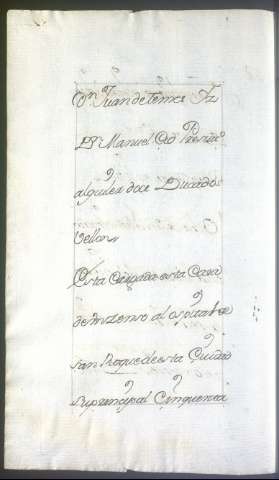 Dn Juan de
Dn Manuel Cid Presvro
alquiler doce Ducados
Vellon
Esta Cargada esta Casa
de un Zenso al ospital de
San Roque de esta Ciudad
su prinzipal Cinquenta